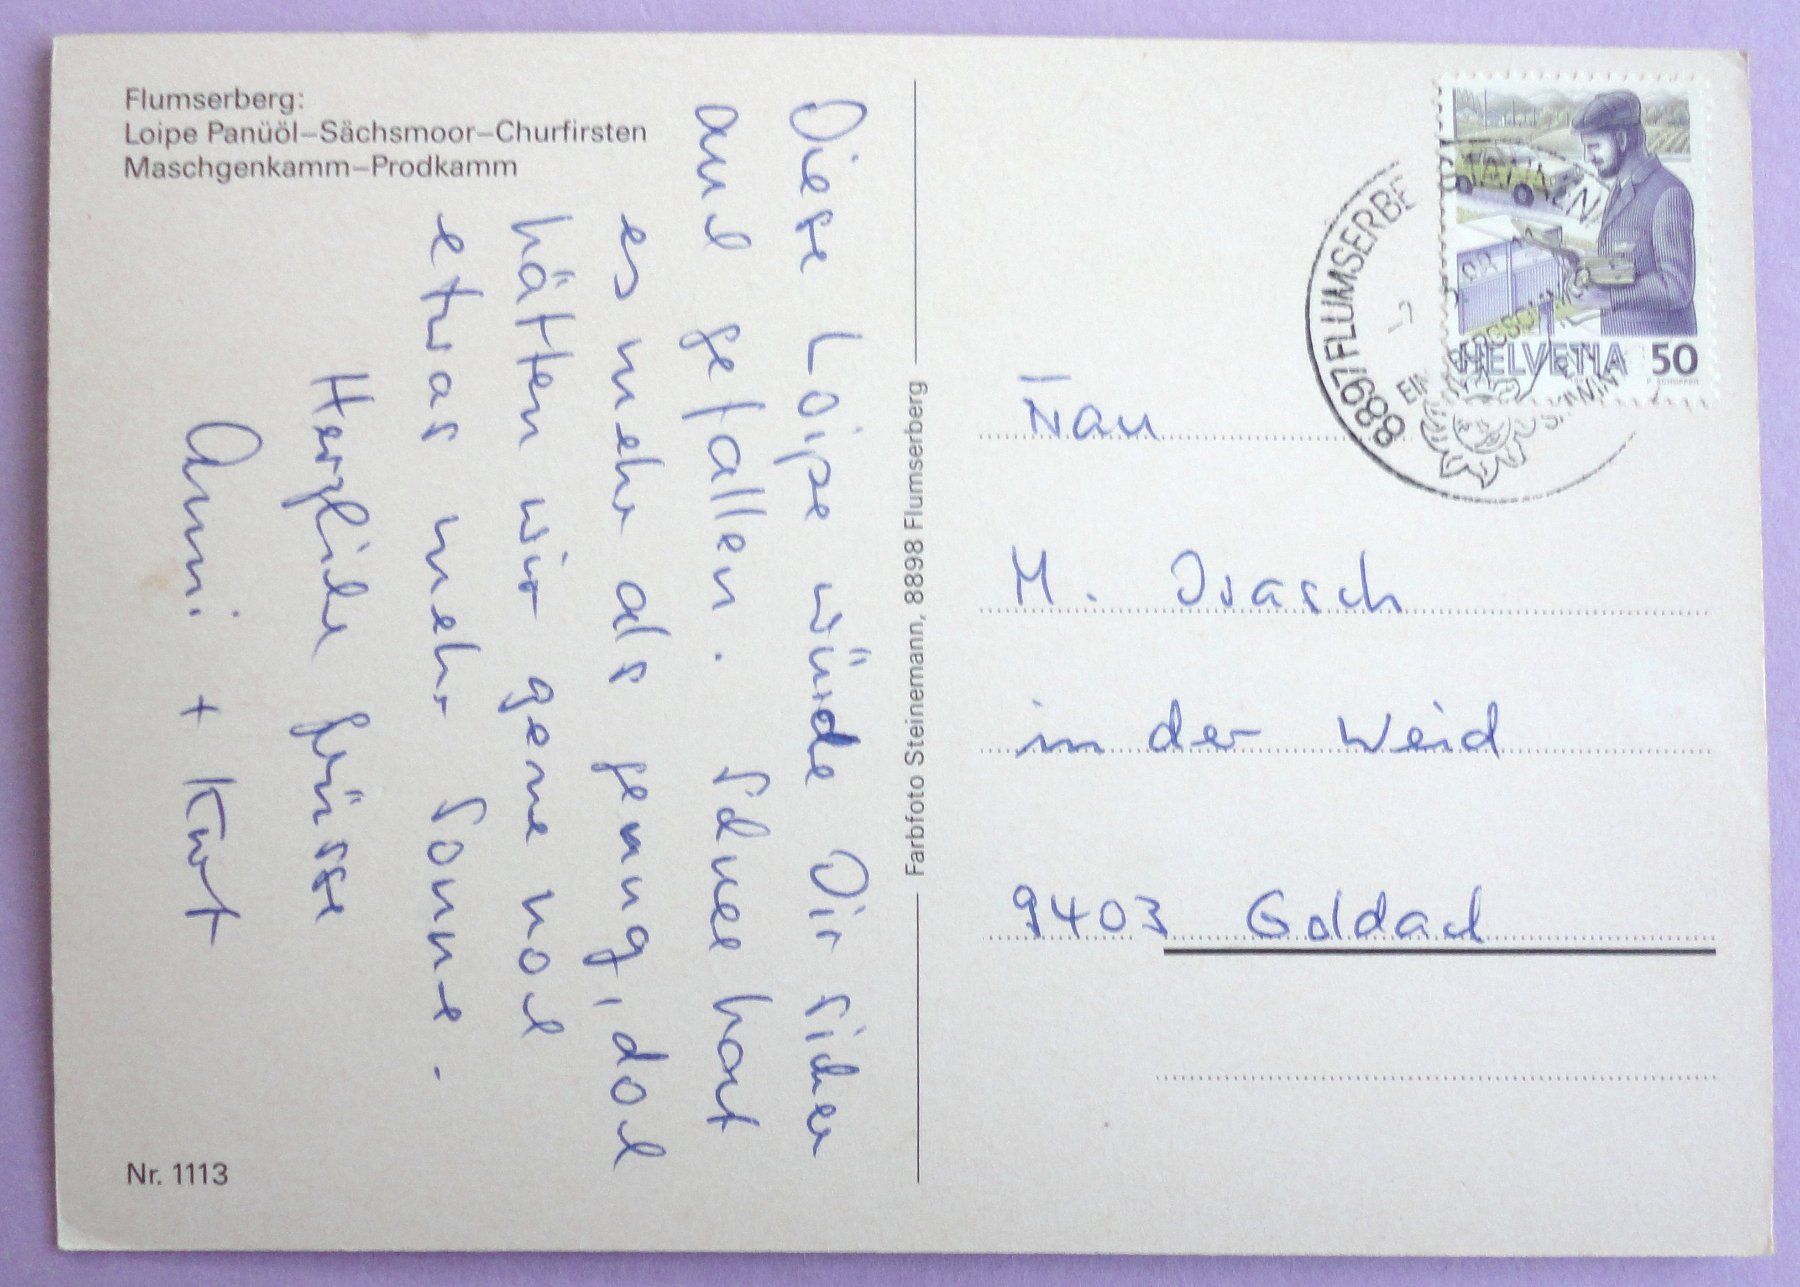 Flumserberg:
Loipe Panüöl–Sächsmoor–Churfirsten
Maschgenkamm–Prodkamm
Diese Loipe würde Dir sicher
auch gefallen. Schnee hat
es mehr als genug, doch
hätten wir gerne noch
etwas mehr Sonne.
Herzliche Grüsse
Anni + Kurt
Nr. 1113
Farbfoto Steinemann, 8898 Flumserberg
8897 FLUMSERBE
HELVETIA 50
Frau
M. Isasch
in der Weid
9403 Goldach